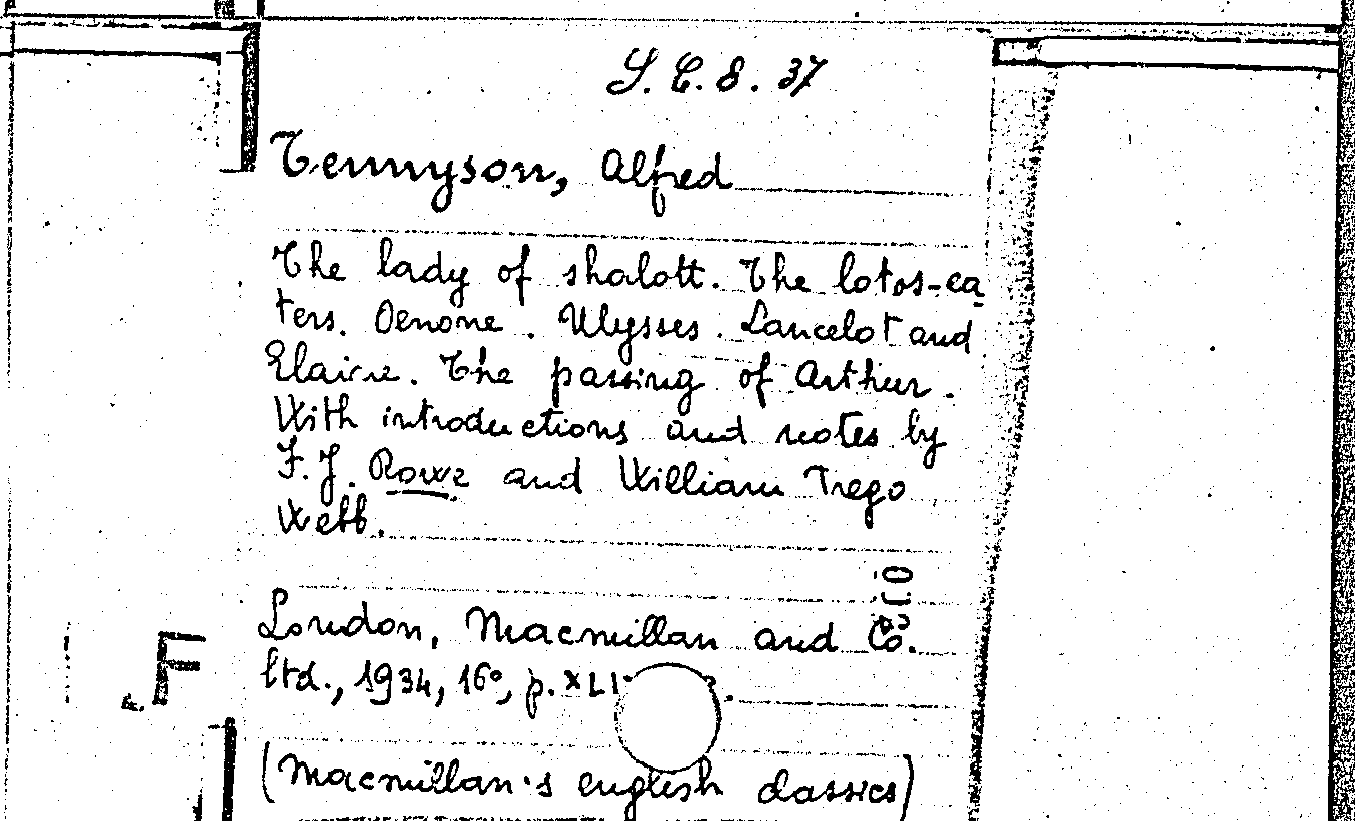 S. C. 8. 37
Tennyson, Alfred
The lady of shalott. The lotos-ea
ters. Oenone. Ulysses. Lancelot and
Elaine. The passing of Arthur.
With introductions and notes by
F. J. Rowe and William Trego
Webb.
London, Macmillan and Co.
ltd., 1934, 16°, p.
(Macmillan's english classics)
F